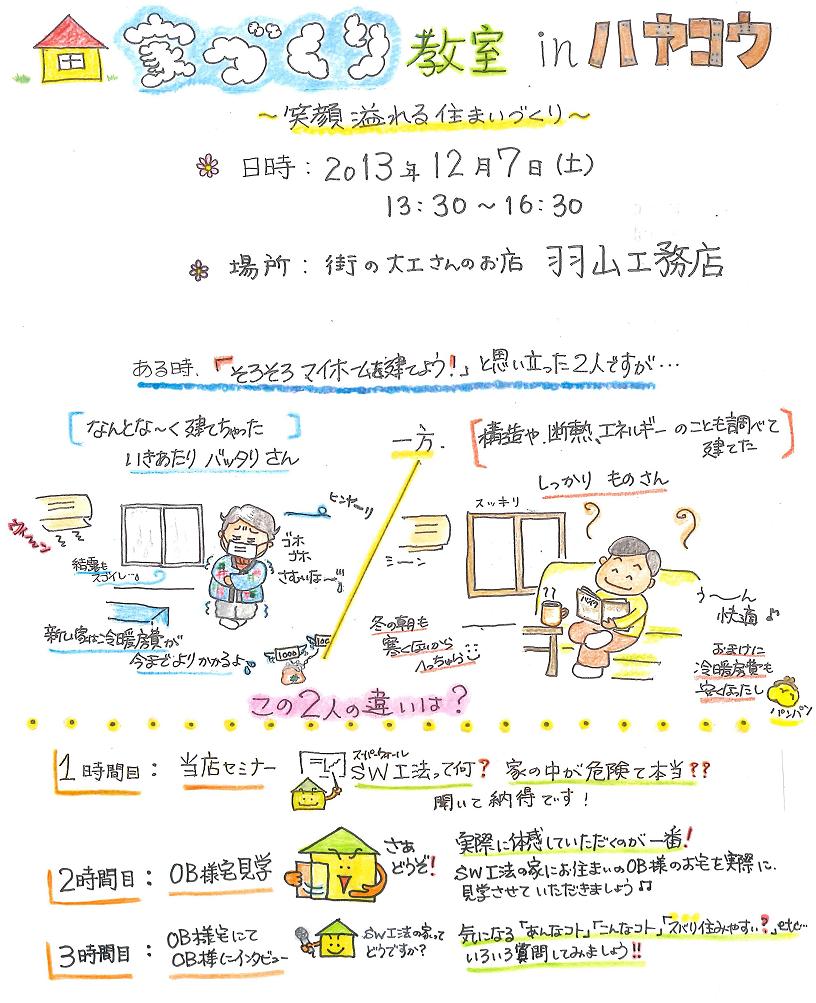 家づくり教室 in ハヤコウ
～笑顔溢れる住まいづくり～
日時：2013年12月7日(土)
13:30～16:30
場所：街の大工さんのお店 羽山工務店
ある時、「そろそろマイホームを建てよう!」と思い立った2人ですが…
なんとな～く建てちゃった
いきあたりバッタリさん
一方、
構造や、断熱、エネルギーのことも調べて
建てた
しっかりものさん
ウィーン
ヒンヤーリ
ゴホ
ゴホ
さむいな～!!
結露も
スゴイし…
新しい家なのに冷暖房費が
今までよりかかるよ
1000
100
スッキリ
ミーン
バイク
う～～ん
快適♪
冬の朝も
寒くないから
へっちゃら
おまけに
冷暖房費も
安くなったし
パンパン
この2人の違いは？
1時間目： 当店セミナー
スーパーウォール
SW工法って何? 家の中が危険て本当??
聞いて納得です！
2時間目： OB様宅見学
さぁ
どうぞ!
実際に体感していただくのが一番!
SW工法の家にお住まいのOB様のお宅を実際に、
見学させていただきましょう♫
3時間目： OB様宅にて
OB様にインタビュー
SW工法の家って
どうですか？
気になる「あんなコト」「こんなコト」「ズバリ住みやすい?」etc…
いろいろ質問してみましょう!!